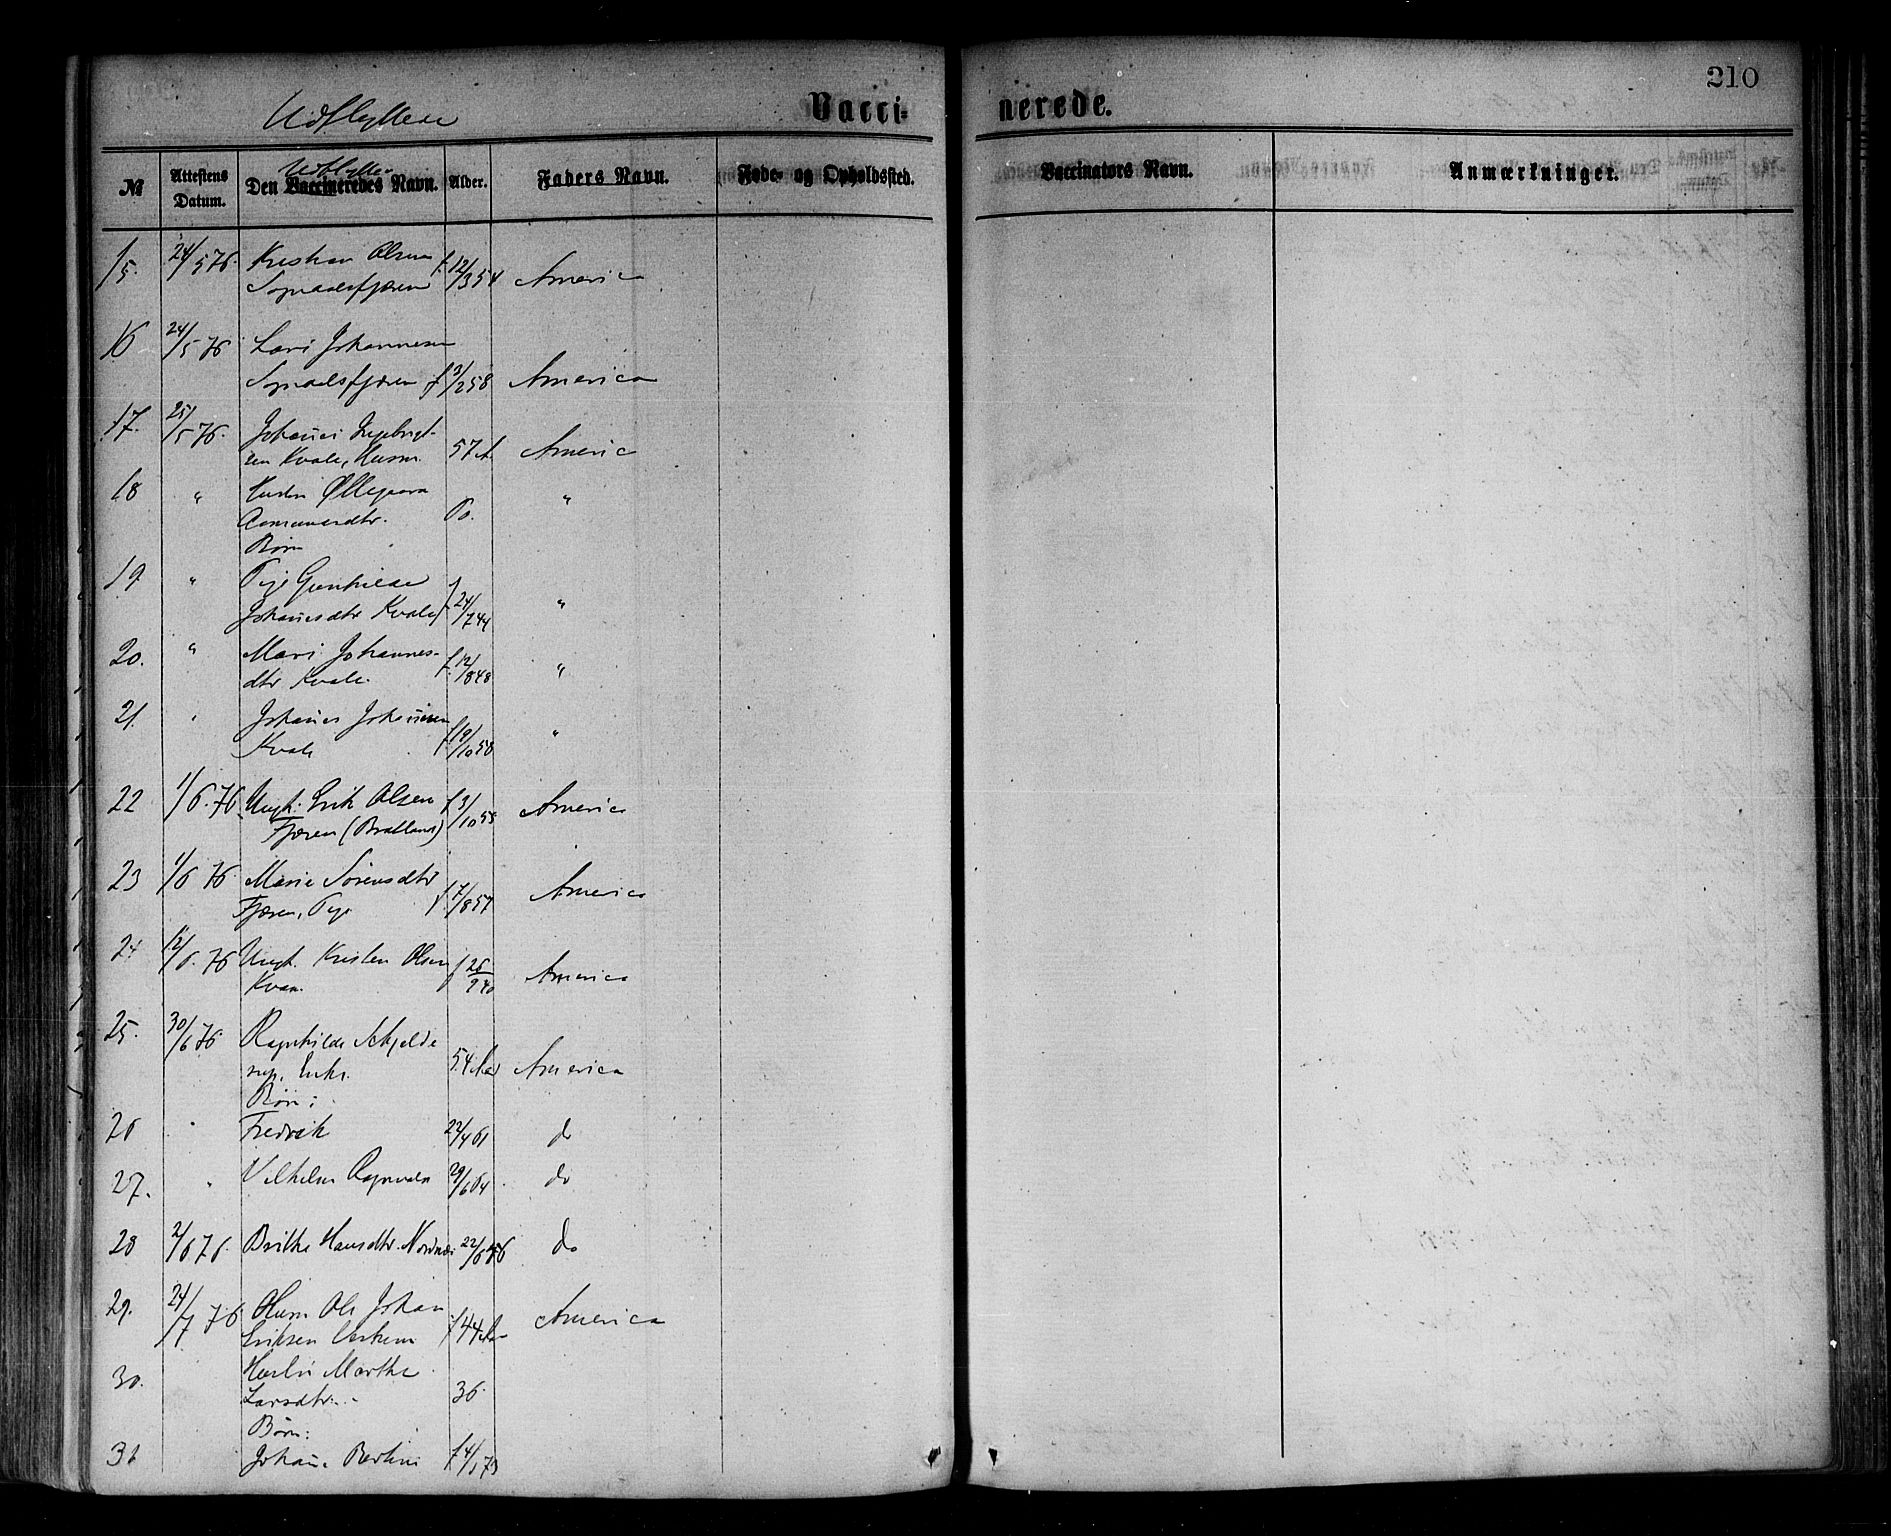 210
Udflyttede
Vacci- nerede.
Udflyttes
№ Attestens Datum. Den Vaccineredes Navn. Alder. Faders Navn. Føde- og Opholdssted. Vaccinators Navn. Anmærkninger.
15. 24/5 76. Kristian Olsen
Sogndalsfjæren f. 12/3 54 America
16 24/5 76 Lars Johannesen
Sogndalsfjæren f 3/2 58 America
17. 25/5 76. Johannes Ingebrigt-
sen Kvale, Husm. 57 A. America
18 " Hustru Øllegaard
do. "
Børn
19 " Pige Gunhilde
Johannesdtr Kvale f. 24/7 44 "
20. " Mari Johannes-
dtr Kvale. f. 12/8 48 "
21. " Johannes Johannesen
Kvale f 19/10 58 "
22 1/6. 76 Ungk. Erik Olsen f 3/10 55 America
Fjæren (Bratland)
23 1/6 76. Marie Sørensdtr
Fjæren, Pige f 7/8 57 America
24 12/6. 76 Ungk. Kristen Olsen f 26/9 40 America
Kvam.
25. 30/6 76. Ragnhilde
Enke. 54 Aar America
Børn:
26 " Fredrik 22/4 61 do
27. " Vilhelm Ragnvald 29/6 64 do
28 2/6 76. Brithe Hansdtr. Nornæs 22/6 56 do
29. 24/7 76 Husm Ole Johan
Eriksen f 44 Aar America
30. Hustru Marthe
Larsdtr. 36
Børn:
31 Johanne Bertine f 4/1 73